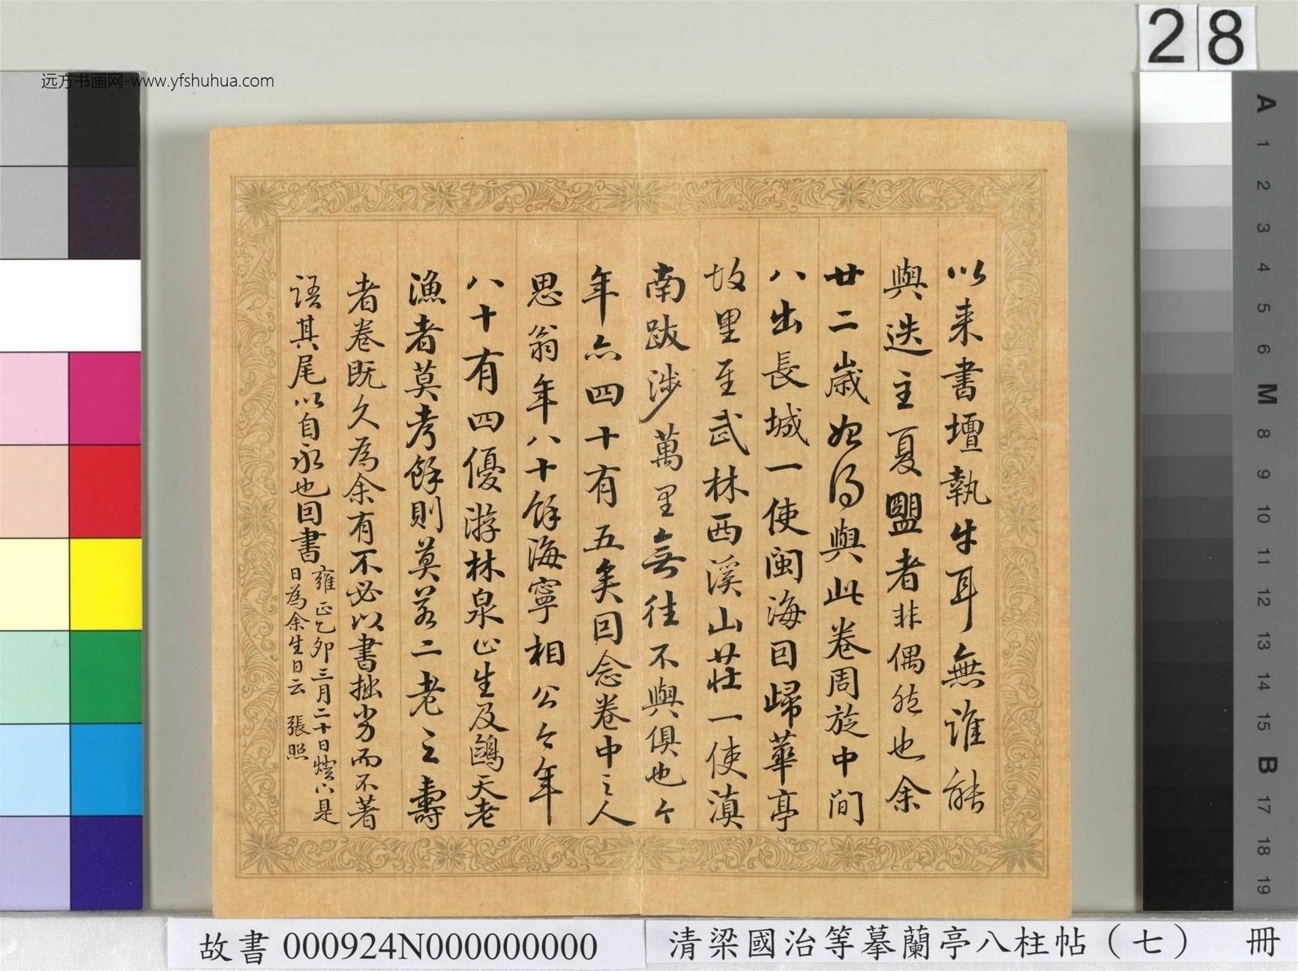 远方书画网-www.yfshuhua.com
28
以来書壇執牛耳無誰能
與迭主夏盟者非偶然也余
廿二歲始得與此卷周旋中間
八出長城一使閩海回歸華亭
故里至武林西溪山莊一使滇
南跋涉萬里無往不與俱也今
年亦四十有五矣回念卷中之人
思翁年八十餘海寧相公今年
八十有四優游林泉
漁者莫考餘則莫若二老之壽
者卷既久為余有不必以書拙劣而不著
語其尾以自永也回書
雍正乙卯三月二十日是
日為余生日云 張照
A 1 2 3 4 5 6 M 8 9 10 11 12 13 14 15 B 17 18 19
故書 000924N000000000
清梁國治等摹蘭亭八柱帖（七） 冊